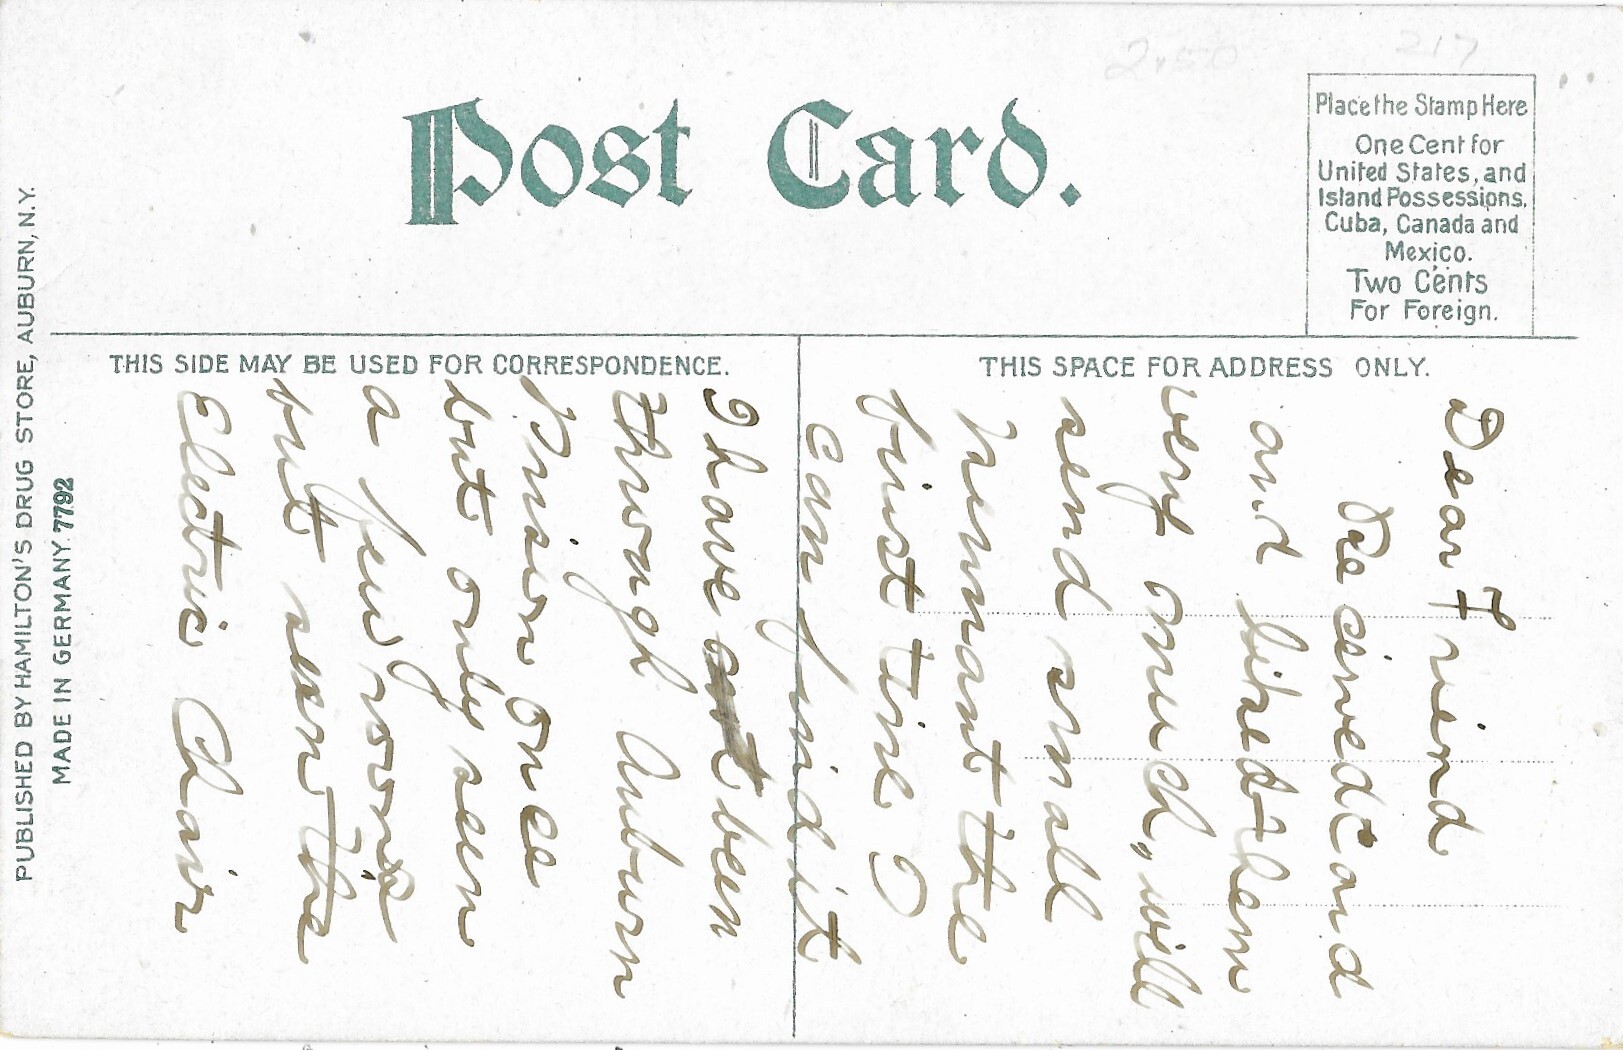 2.50
217
Post Card.
Place the Stamp Here
One Cent for
United States, and
Island Possessions,
Cuba, Canada and
Mexico.
Two Cents
For Foreign.
THIS SIDE MAY BE USED FOR CORRESPONDENCE.
THIS SPACE FOR ADDRESS ONLY.
PUBLISHED BY HAMILTON'S DRUG STORE, AUBURN, N.Y.
MADE IN GERMANY. 7792
Dear Friend
Recived Card
and liked them
very much, will
send small
pennant the
first time I
can find it
I have been
through Auburn
Prison once
but only seen
a few rooms
but seen the
Electric Chair